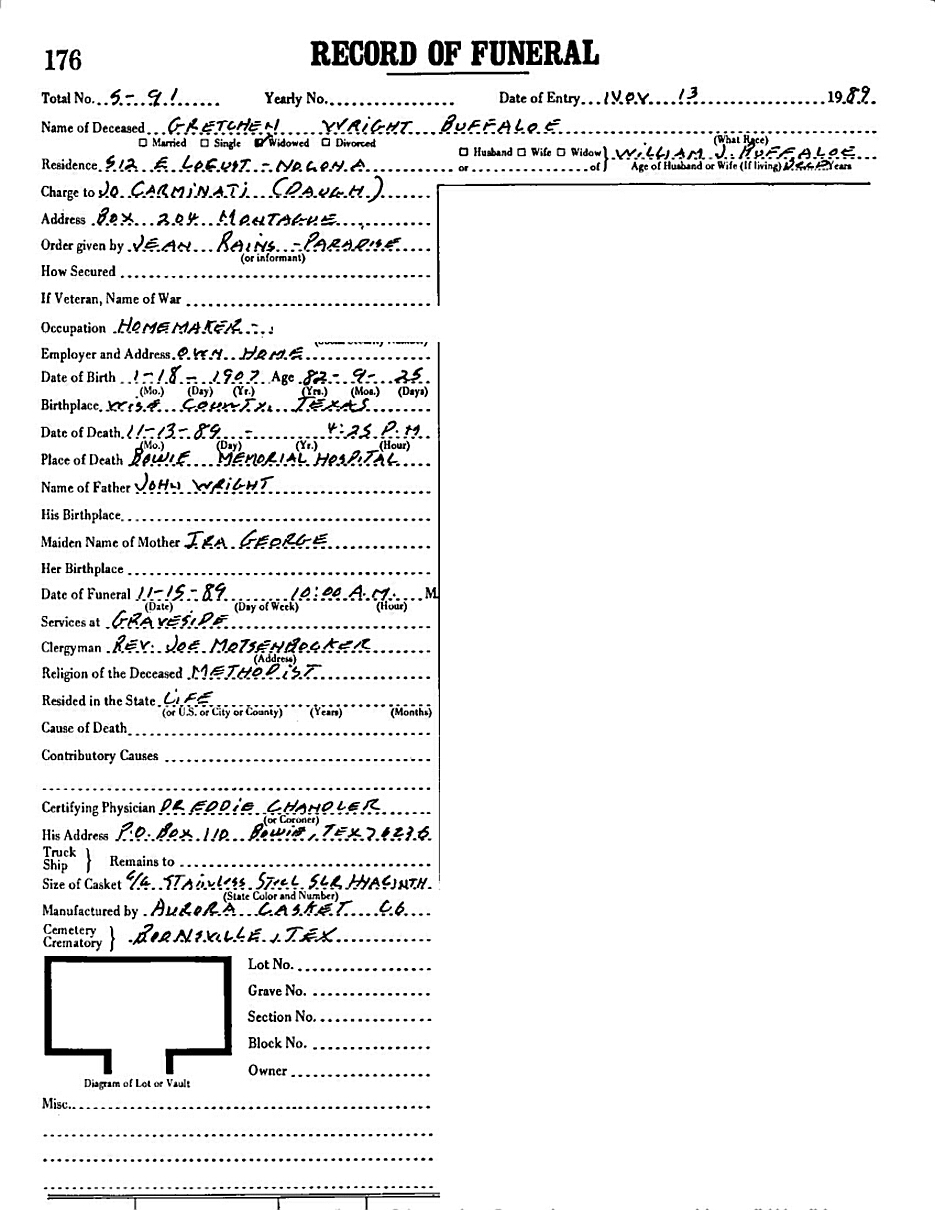 176 RECORD OF FUNERAL
Total No. S-91 Yearly No. Date of Entry NOV 13 1989.
Name of Deceased GRETCHEN WRIGHT BUFFALOE
(What Race)
☐ Married ☐ Single ☑ Widowed ☐ Divorced
☐ Husband ☐ Wife ☐ Widow } WILLIAM J. BUFFALOE
Residence 512 E LOCUST - NOCONA or of Age of Husband or Wife (If living) DEC'D Years
Charge to JO CARMINATI (DAUGH.)
Address BOX 204 MONTAGUE
Order given by JEAN RAINS - PARADISE
(or informant)
How Secured
If Veteran, Name of War
Occupation HOMEMAKER
Employer and Address OWN HOME
Date of Birth 1-18-1907 Age 82-9-25
(Mo.) (Day) (Yr.) (Yrs.) (Mos.) (Days)
Birthplace WISE COUNTY, TEXAS
Date of Death 11-13-89 - 4:25 P.M.
(Mo.) (Day) (Yr.) (Hour)
Place of Death BOWIE MEMORIAL HOSPITAL
Name of Father JOHN WRIGHT
His Birthplace
Maiden Name of Mother IRA GEORGE
Her Birthplace
Date of Funeral 11-15-89 10:00 A.M. M
(Date) (Day of Week) (Hour)
Services at GRAVESIDE
Clergyman REV. JOE MOTSENBOCKER
(Address)
Religion of the Deceased METHODIST
Resided in the State LIFE
(or U.S. or City or County) (Years) (Months)
Cause of Death
Contributory Causes
Certifying Physician DR EDDIE CHANDLER
(or Coroner)
His Address P.O. BOX 110 BOWIE, TEX 76230
Truck
Ship } Remains to
Size of Casket 6/6 STAINLESS STEEL SLR HYACINTH
(State Color and Number)
Manufactured by AURORA CASKET CO
Cemetery
Crematory } BOONSVILLE, TEX
Lot No.
Grave No.
Section No.
Block No.
Owner
Diagram of Lot or Vault
Misc.